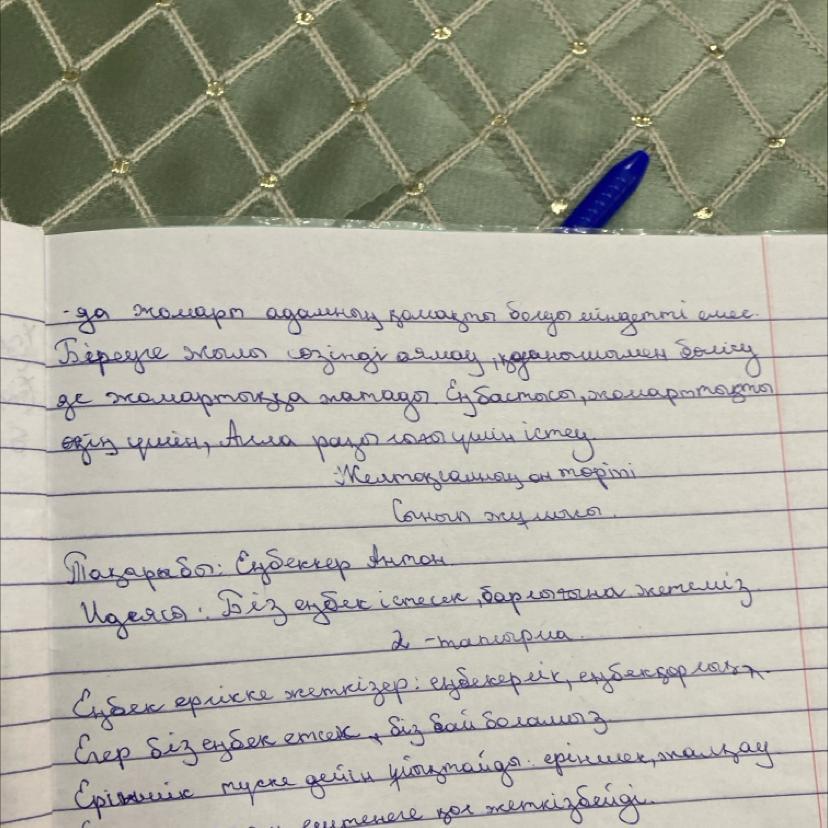 -да жомарт адамның қомақты болуы міндетті емес.
Біреуге жылы сөзіңді аямау, қуанышымен бөлісу
де жомартыққа жатады. Ең бастысы, жомарттықты
өзің үшін, Алла разылығы үшін істеу.
Желтоқсанның он төрті
Сынып жұмысы.
Тақарыбы: Еңбекқер Антон.
Идеясы: Біз еңбек істесек, барлығына жетеміз.
2 -тапсырма.
Еңбек ерлікке жеткізер: еңбекерлік, еңбекқорлық.
Егер біз еңбек етсек, біз бай боламыз.
түске дейін ұйықтайды: еріншек, жалқау
ештеңеге қол жеткізбейді.